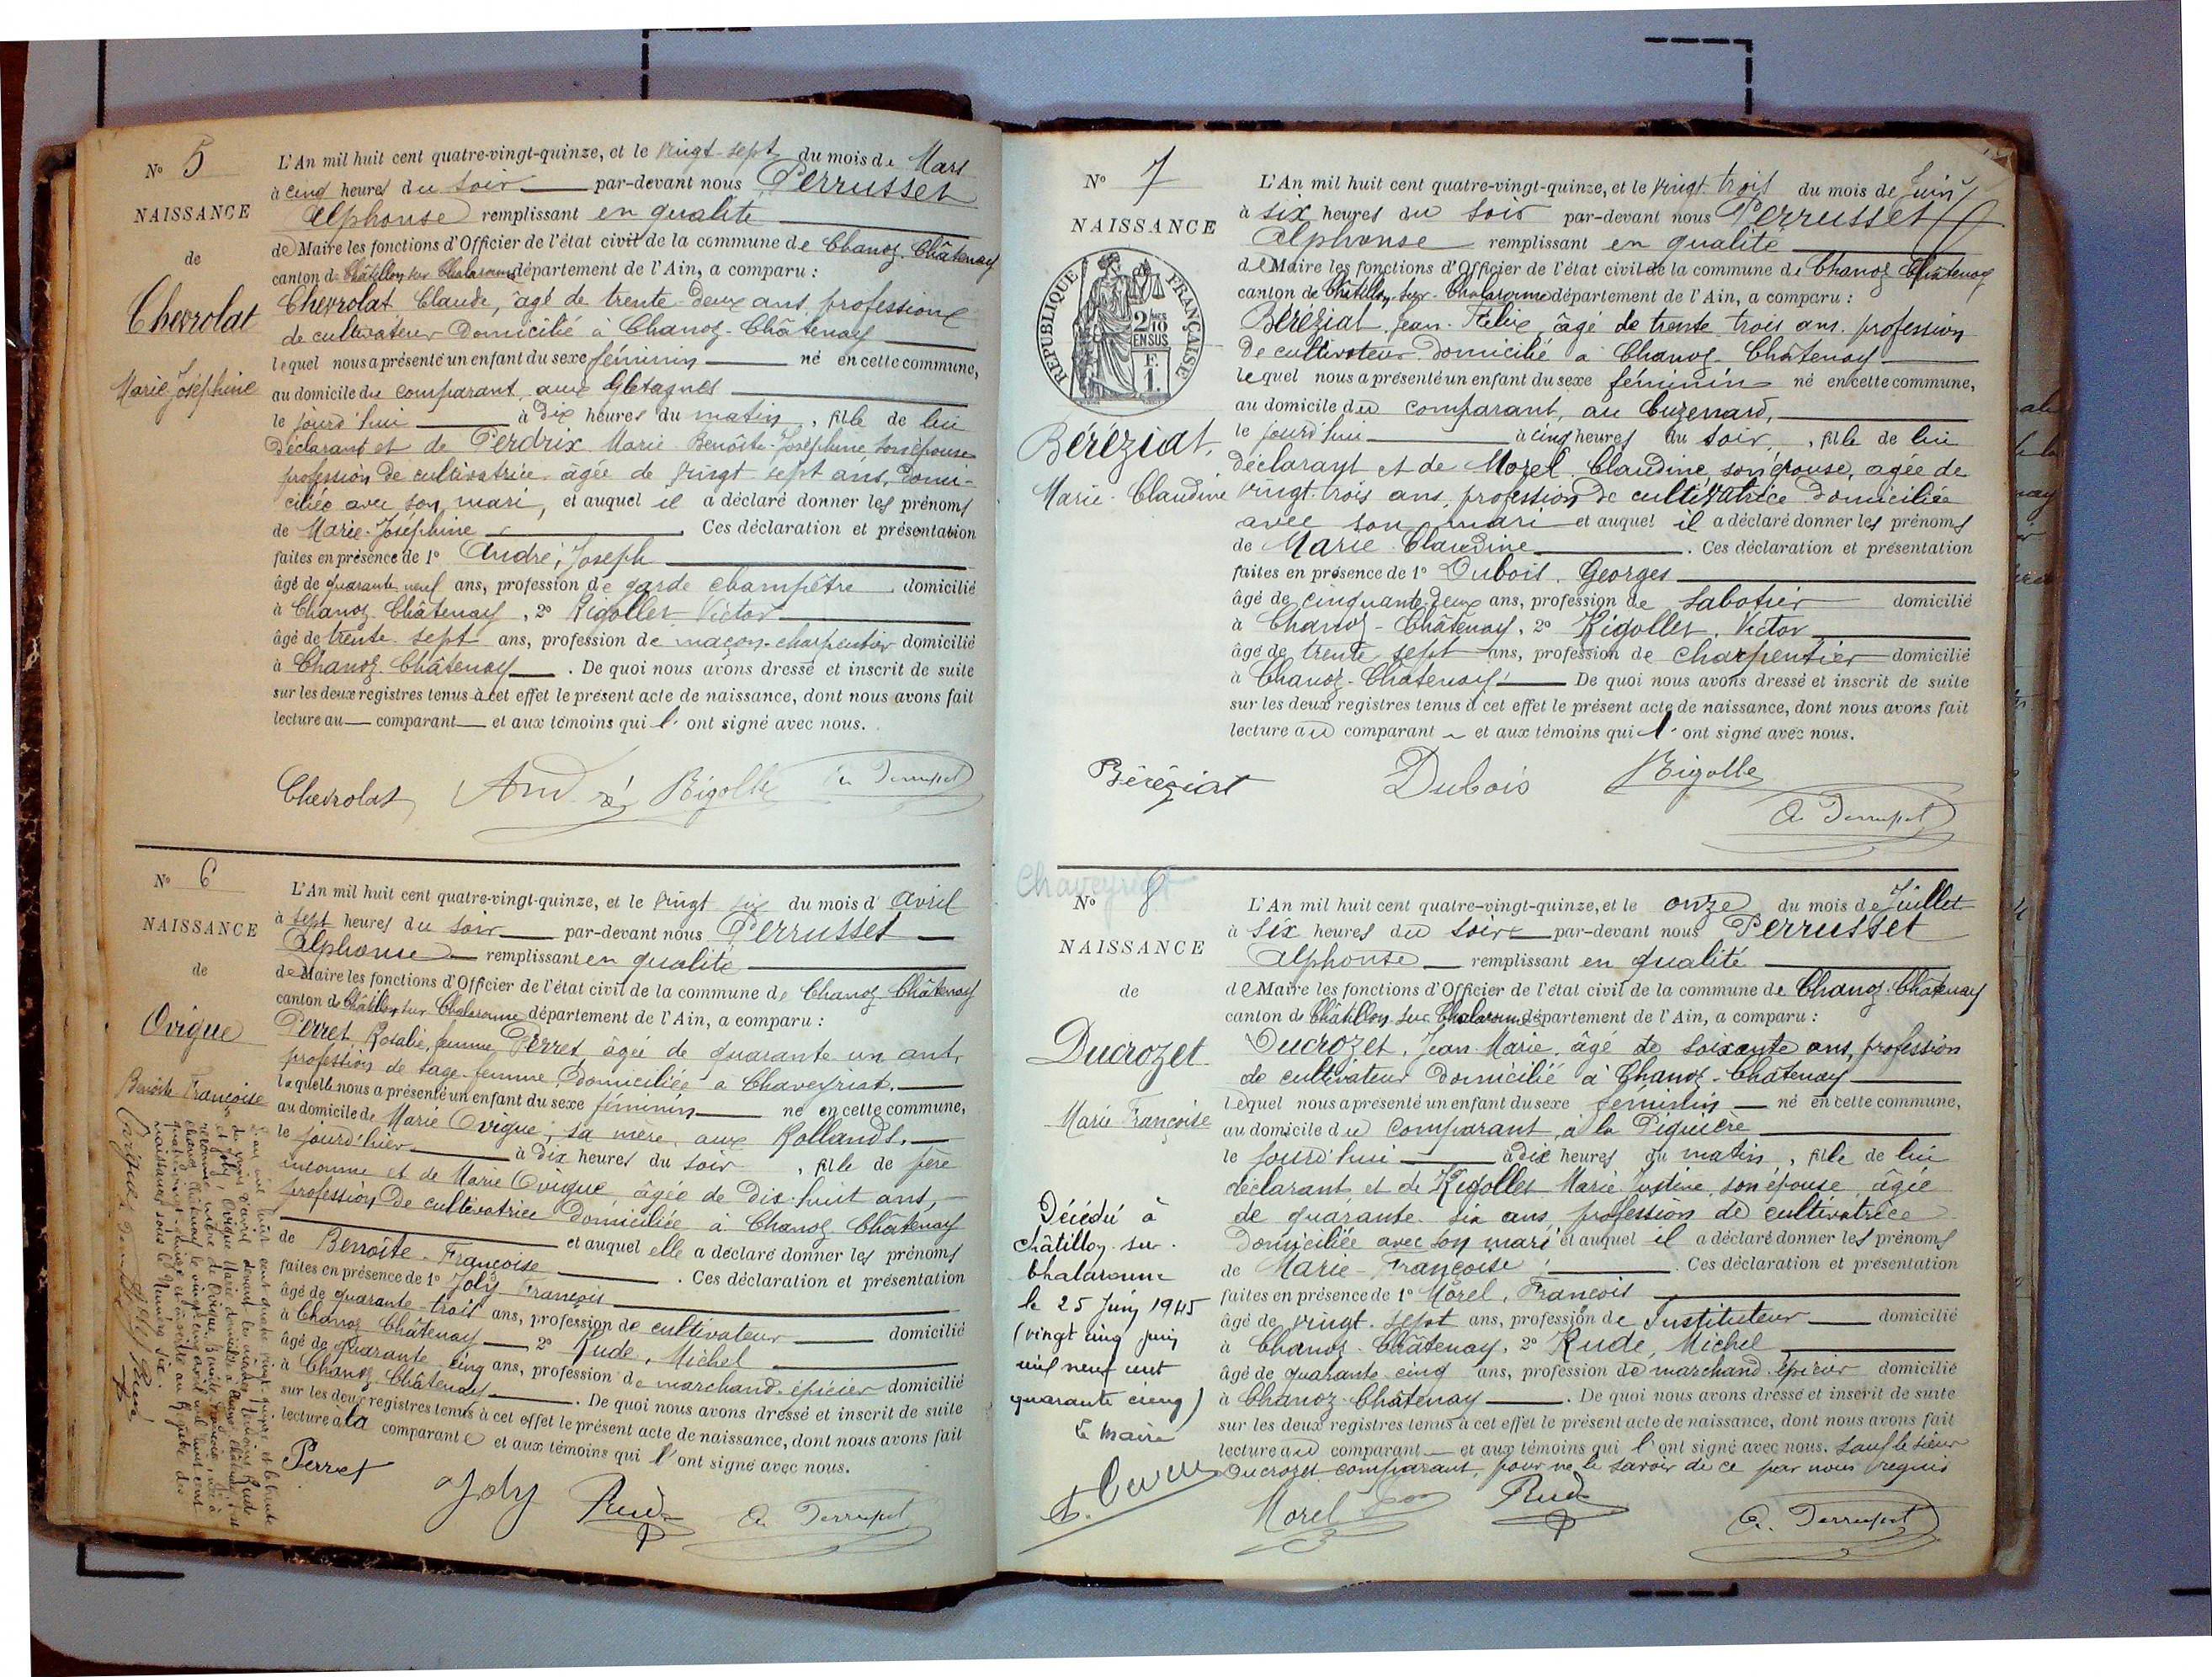 N° 5
NAISSANCE
de
Chevrolat
Marie Joséphine
L'An mil huit cent quatre-vingt-quinze, et le vingt-sept du mois de Mars
à cinq heures du soir par-devant nous Perrusset
Alphonse remplissant en qualité
de Maire les fonctions d'Officier de l'état civil de la commune de Chanoz-Châtenay
canton de Châtillon sur Chalaronne département de l'Ain, a comparu :
Chevrolat Claude, âgé de trente-deux ans, profession
de cultivateur domicilié à Chanoz-Châtenay
lequel nous a présenté un enfant du sexe féminin né en cette commune,
au domicile du comparant, aux Gletagnes
le jourd'hui à dix heures du matin, fille de lui
déclarant et de Perdrix Marie-Benoîte-Joséphine, son épouse
profession de cultivatrice âgée de vingt-sept ans, domi-
ciliée avec son mari, et auquel il a déclaré donner les prénoms
de Marie-Joséphine Ces déclaration et présentation
faites en présence de 1° André, Joseph
âgé de quarante neuf ans, profession de garde champêtre domicilié
à Chanoz Châtenay, 2° Rigollet Victor
âgé de trente-sept ans, profession de maçon-charpentier domicilié
à Chanoz-Châtenay. De quoi nous avons dressé et inscrit de suite
sur les deux registres tenus à cet effet le présent acte de naissance, dont nous avons fait
lecture au comparant et aux témoins qui l'ont signé avec nous.
Chevrolat André Rigollet A. Perrusset
N° 6
NAISSANCE
de
Ovigue
Benoîte Françoise
L'An mil huit cent quatre-vingt-quinze, et le vingt six du mois d'Avril
à sept heures du soir par-devant nous Perrusset
Alphonse remplissant en qualité
de Maire les fonctions d'Officier de l'état civil de la commune de Chanoz-Châtenay
canton de Châtillon sur Chalaronne département de l'Ain, a comparu :
Perret, Rosalie, femme Perret, âgée de quarante un ans,
profession de sage-femme, domiciliée à Chaveyriat,
laquelle nous a présenté un enfant du sexe féminin né en cette commune,
au domicile de Marie Ovigue, sa mère, aux Rollands.
le jourd'hier à dix heures du soir, fille de père
inconnu et de Marie Ovigue, âgée de dix-huit ans,
profession de cultivatrice domiciliée à Chanoz Châtenay
et auquel elle a déclaré donner les prénoms
de Benoîte-Françoise. Ces déclaration et présentation
faites en présence de 1° Joly François
âgé de quarante-trois ans, profession de cultivateur domicilié
à Chanoz Châtenay 2° Rude, Michel
âgé de quarante cinq ans, profession de marchand-épicier domicilié
à Chanoz-Châtenay. De quoi nous avons dressé et inscrit de suite
sur les deux registres tenus à cet effet le présent acte de naissance, dont nous avons fait
lecture à la comparante et aux témoins qui l'ont signé avec nous.
Perret Joly Rude A. Perrusset
N° 7
NAISSANCE
RÉPUBLIQUE FRANÇAISE
2/10
EN SUS
F.
1.
Béréziat,
Marie-Claudine
L'An mil huit cent quatre-vingt-quinze, et le vingt trois du mois de Juin
à six heures du soir par-devant nous Perrusset
Alphonse remplissant en qualité
de Maire les fonctions d'Officier de l'état civil de la commune de Chanoz Châtenay
canton de Châtillon-sur-Chalaronne département de l'Ain, a comparu :
Béréziat, Jean-Félix, âgé de trente trois ans, profession
de cultivateur domicilié à Chanoz-Châtenay
lequel nous a présenté un enfant du sexe féminin né en cette commune,
au domicile du comparant, au Cuzenard,
le jourd'hui à cinq heures du soir, fille de lui
déclarant et de Morel Claudine, son épouse, âgée de
vingt-trois ans, profession de cultivatrice domiciliée
avec son mari et auquel il a déclaré donner les prénoms
de Marie-Claudine. Ces déclaration et présentation
faites en présence de 1° Dubois, Georges
âgé de cinquante-deux ans, profession de sabotier domicilié
à Chanoz-Châtenay, 2° Rigollet, Victor
âgé de trente sept ans, profession de charpentier domicilié
à Chanoz-Châtenay. De quoi nous avons dressé et inscrit de suite
sur les deux registres tenus à cet effet le présent acte de naissance, dont nous avons fait
lecture au comparant et aux témoins qui l'ont signé avec nous.
Béréziat Dubois Rigollet
A. Perrusset
Chaveyriat
N° 8
NAISSANCE
de
Ducrozet
Marie Françoise
Décédé à
Châtillon-sur-
Chalaronne
le 25 Juin 1945
(vingt cinq juin
mil neuf cent
quarante cinq)
Le Maire
L'An mil huit cent quatre-vingt-quinze, et le onze du mois de Juillet
à six heures du soir par-devant nous Perrusset
Alphonse remplissant en qualité
de Maire les fonctions d'Officier de l'état civil de la commune de Chanoz-Châtenay
canton de Châtillon sur Chalaronne département de l'Ain, a comparu :
Ducrozet, Jean-Marie, âgé de soixante ans, profession
de cultivateur domicilié à Chanoz-Châtenay
lequel nous a présenté un enfant du sexe féminin né en cette commune,
au domicile du comparant, à la Piquière
le jourd'hui à dix heures du matin, fille de lui
déclarant, et de Rigollet Marie Justine, son épouse, âgée
de quarante-six ans, profession de cultivatrice
domiciliée avec son mari et auquel il a déclaré donner les prénoms
de Marie-Françoise. Ces déclaration et présentation
faites en présence de 1° Morel, François
âgé de vingt-sept ans, profession de Instituteur domicilié
à Chanoz-Châtenay, 2° Rude, Michel
âgé de quarante cinq ans, profession de marchand épicier domicilié
à Chanoz-Châtenay. De quoi nous avons dressé et inscrit de suite
sur les deux registres tenus à cet effet le présent acte de naissance, dont nous avons fait
lecture au comparant et aux témoins qui l'ont signé avec nous. Sauf le sieur
Ducrozet comparant, pour ne le savoir de ce par nous requis
Morel Rude
A. Perrusset